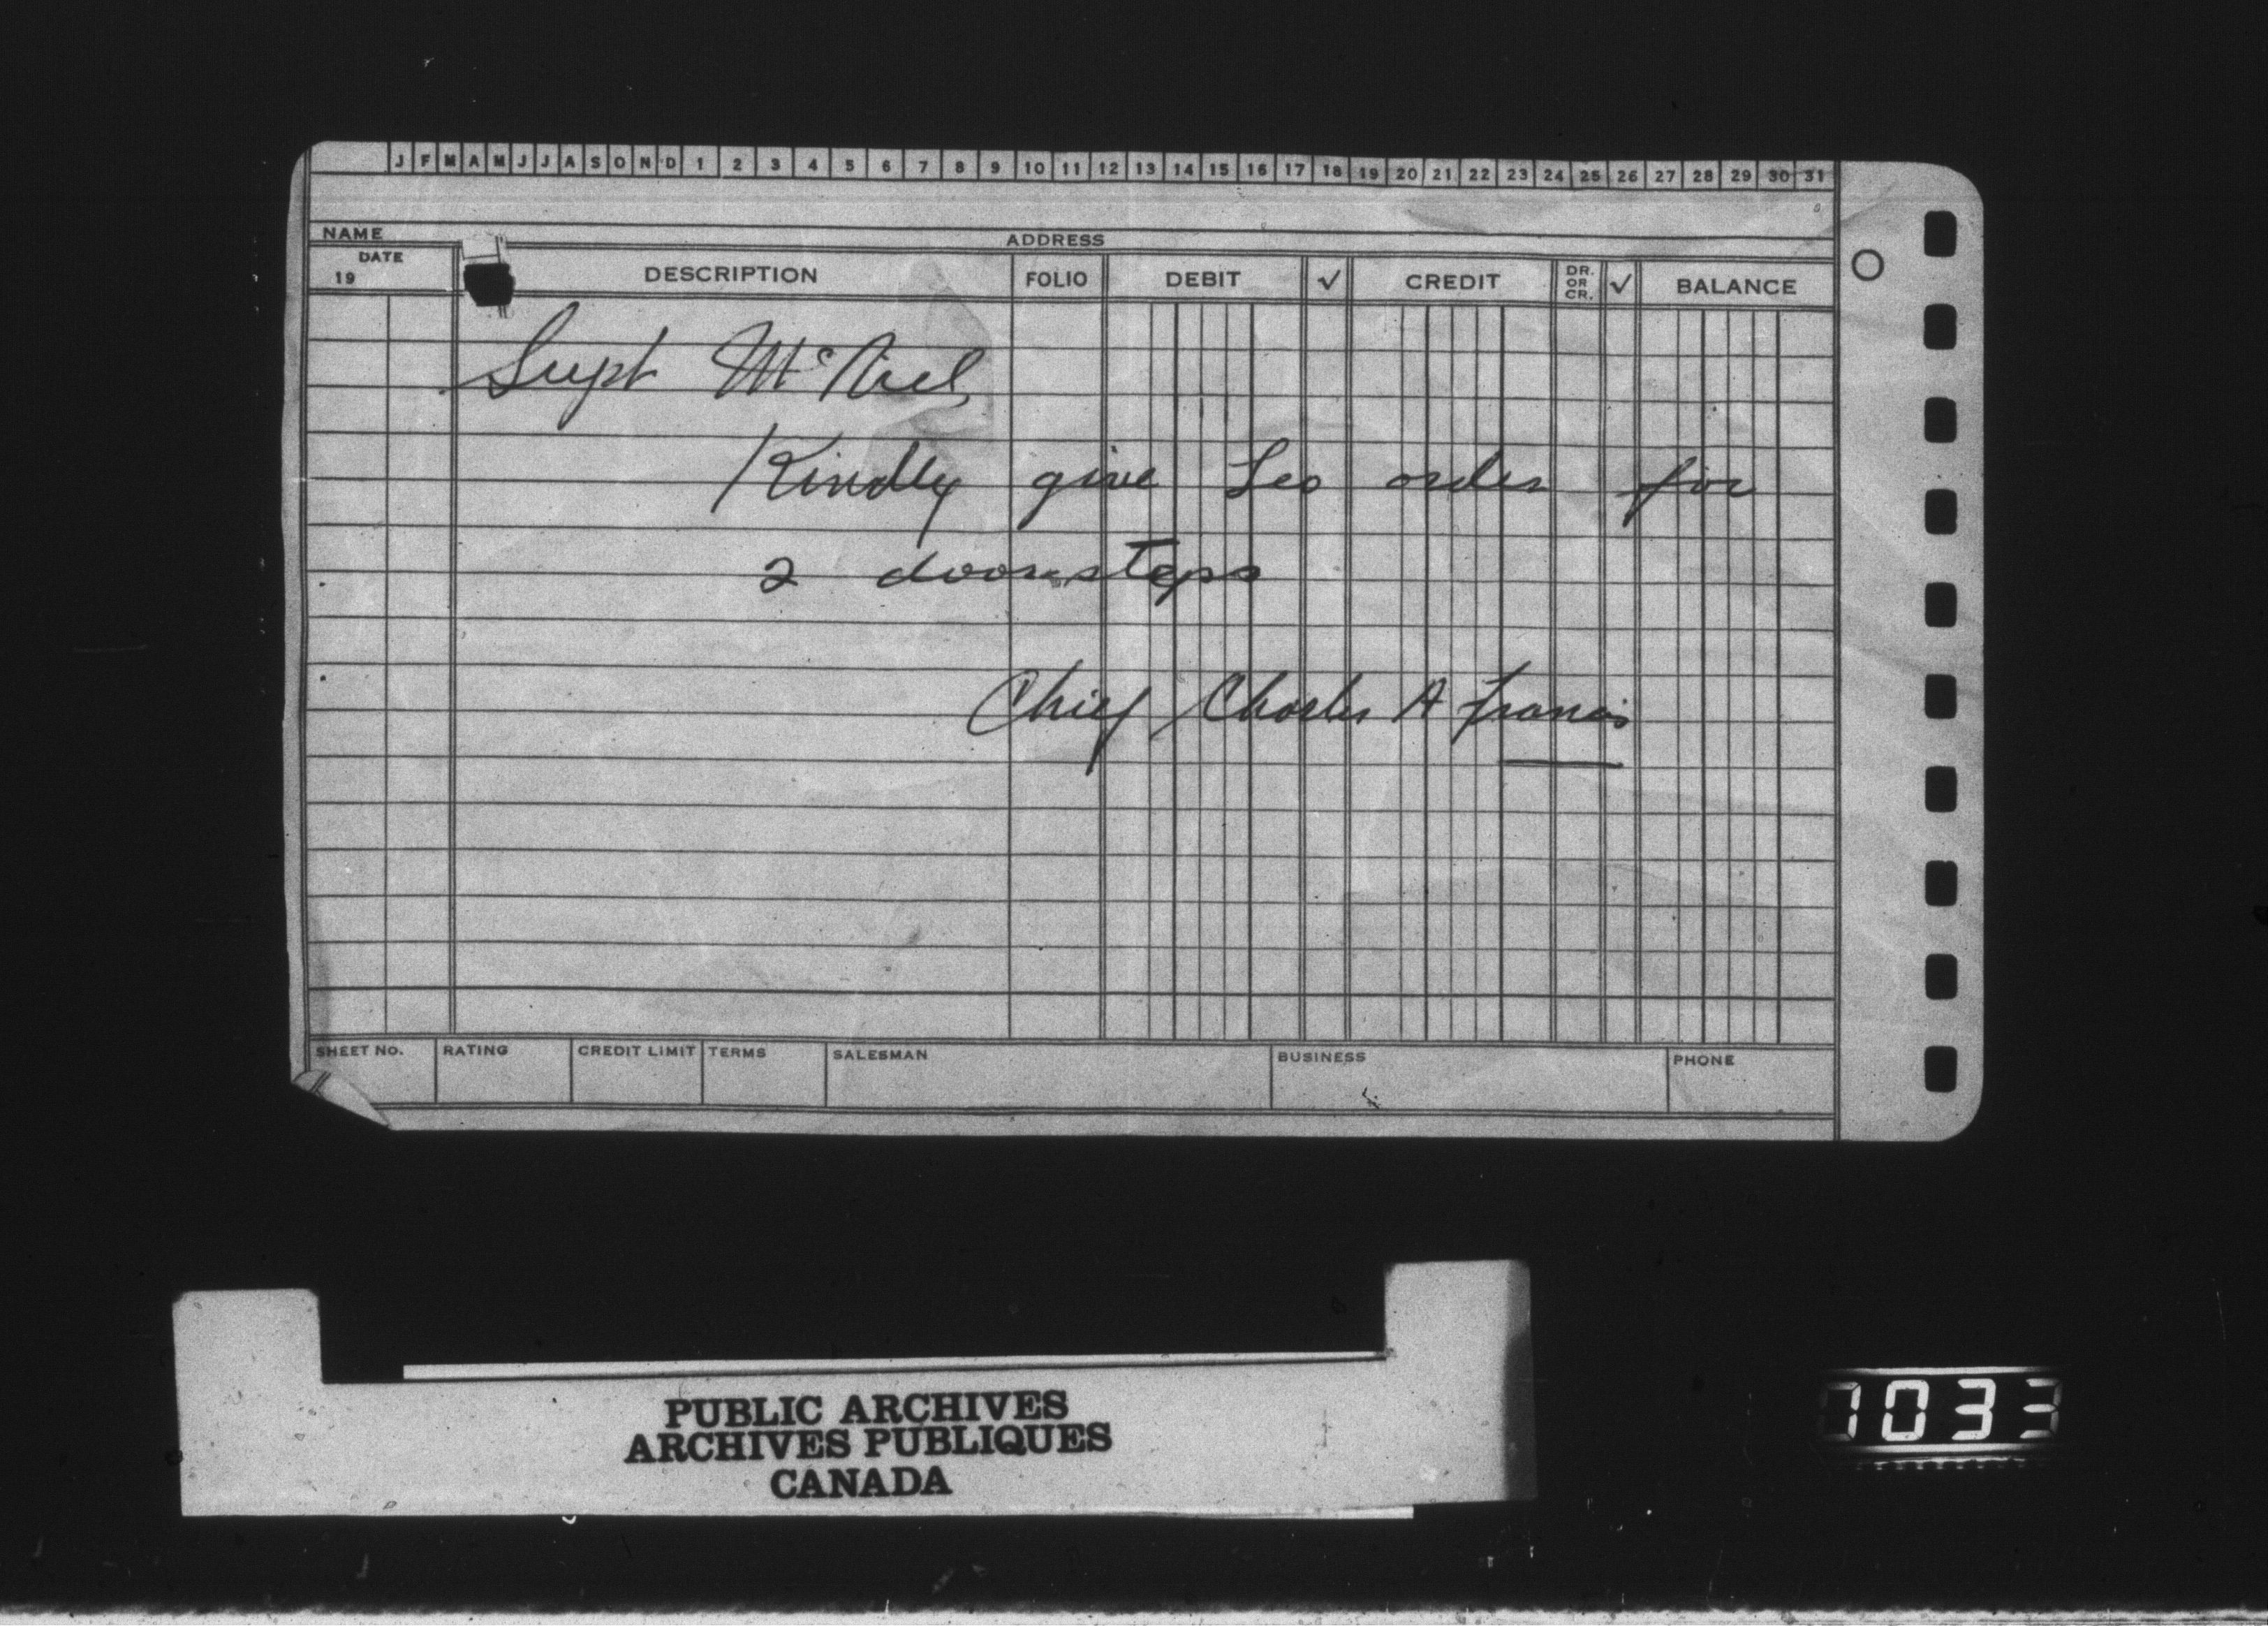 J F M A M J J A S O N D 1 2 3 4 5 6 7 8 9 10 11 12 13 14 15 16 17 18 19 20 21 22 23 24 25 26 27 28 29 30 31
NAME ADDRESS
DATE 19 DESCRIPTION FOLIO DEBIT ✓ CREDIT DR. OR CR. ✓ BALANCE
Supt McNiel,
Kindly give Leo order for
2 doorsteps
Chief Charles A Francis
SHEET NO. RATING CREDIT LIMIT TERMS SALESMAN BUSINESS PHONE
PUBLIC ARCHIVES
ARCHIVES PUBLIQUES
CANADA
1033